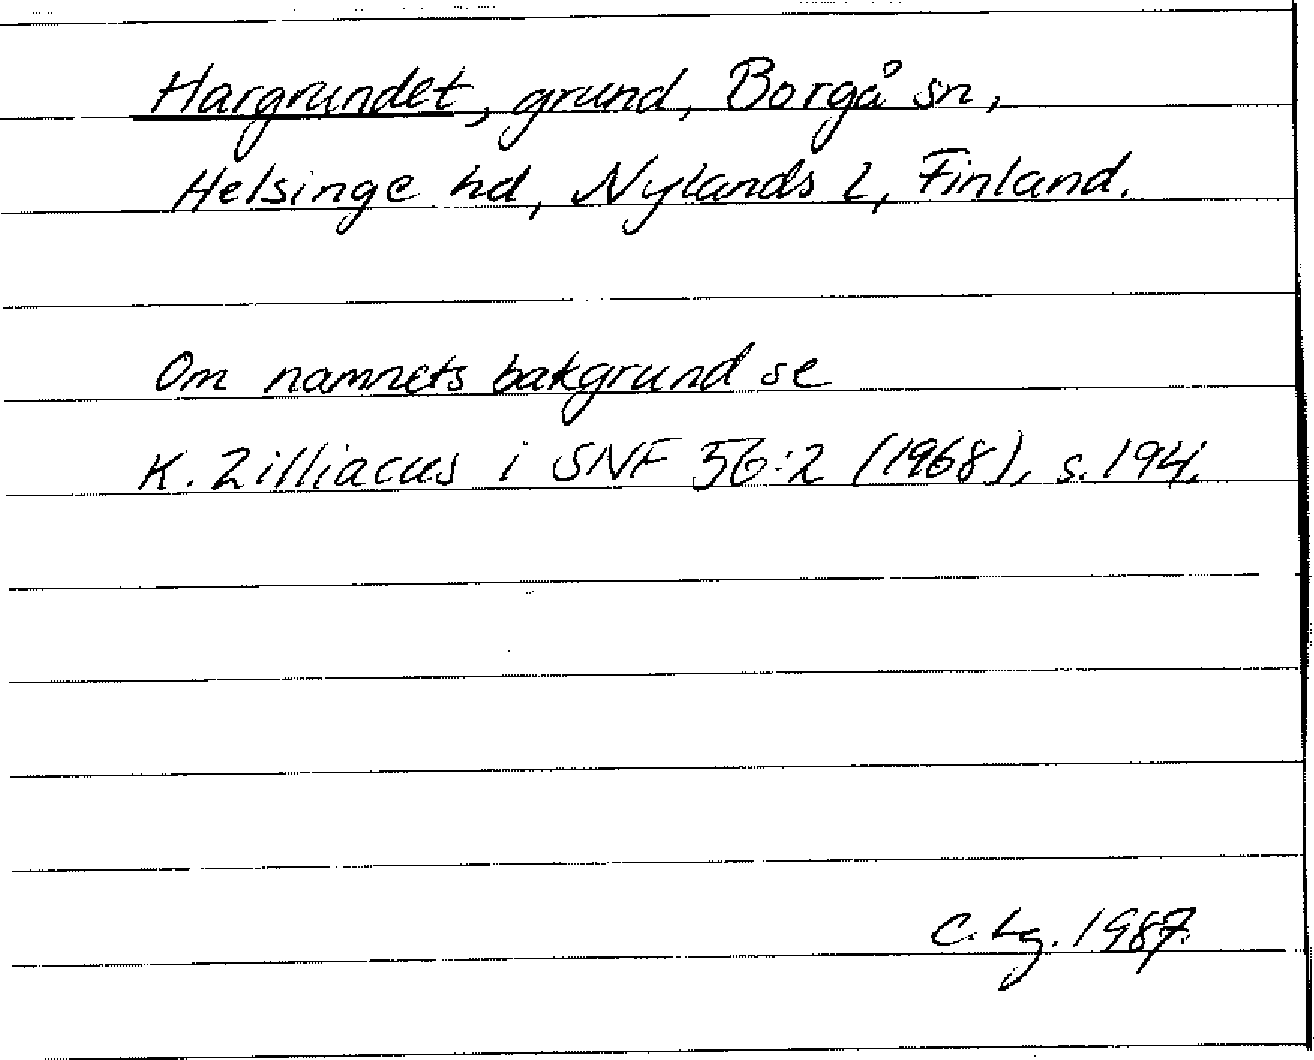 Hargrundet, grund, Borgå sn,
Helsinge hd, Nylands l, Finland.
Om namnets bakgrund se
K. Zilliacus i SNF 56:2 (1968), s. 194.
C. Lg. 1987.